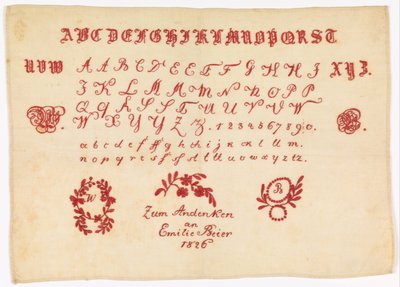 ABCDEFGHIJKLMNOPQRST
UVW AABCDEETFGHHI XYZ.
JKLMMNNOPP
QQRSSTUVVW
WXYYZZ. 1234567890.
abcdefffghhijkkllm.
nopqrstsſstttuvwxyztz.
W R
Zum Andenken
an
Emilie Beier
1826